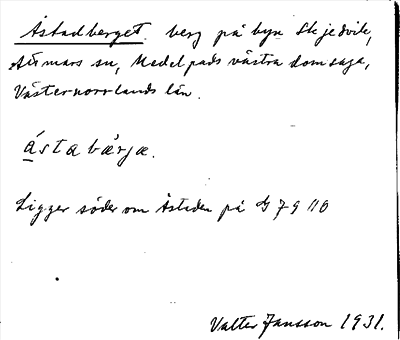 Åstadberget. berg på byn Skjedvik,
Attmars sn, Medelpads västra domsaga,
Västernorrlands län.
åstabærjæ.
Ligger söder om Åstaden på G 79 110
Valter Jansson 1931.